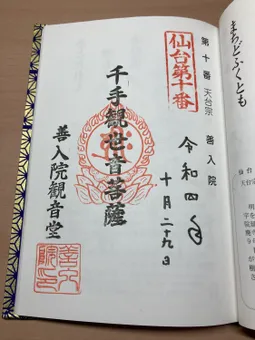 まちどふくとも
第十番 天台宗 善入院
仙台第十番
令和四年
十月二十九日
千手観世音菩薩
善入院観音堂